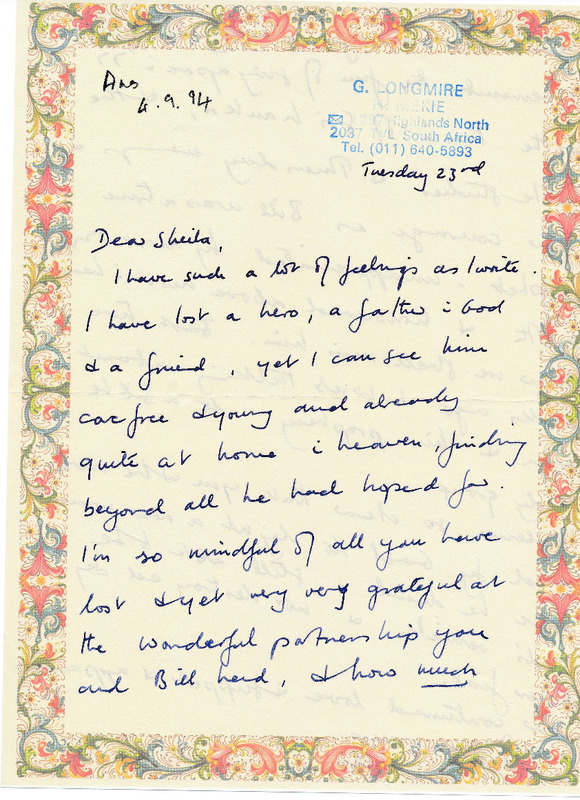 Ans
4.9.94
G. LONGMIRE
Highlands North
2037 TVL South Africa
Tel. (011) 640-5893
Tuesday 23rd
Dear Sheila,
I have such a lot of feelings as I write.
I have lost a hero, a father i God
& a friend, yet I can see him
carfree & young and already
quite at home i heaven, finding
beyond all he had hoped for.
I'm so mindful of all you have
lost & yet very very grateful at
the wonderful partnership you
and Bill had, & how much